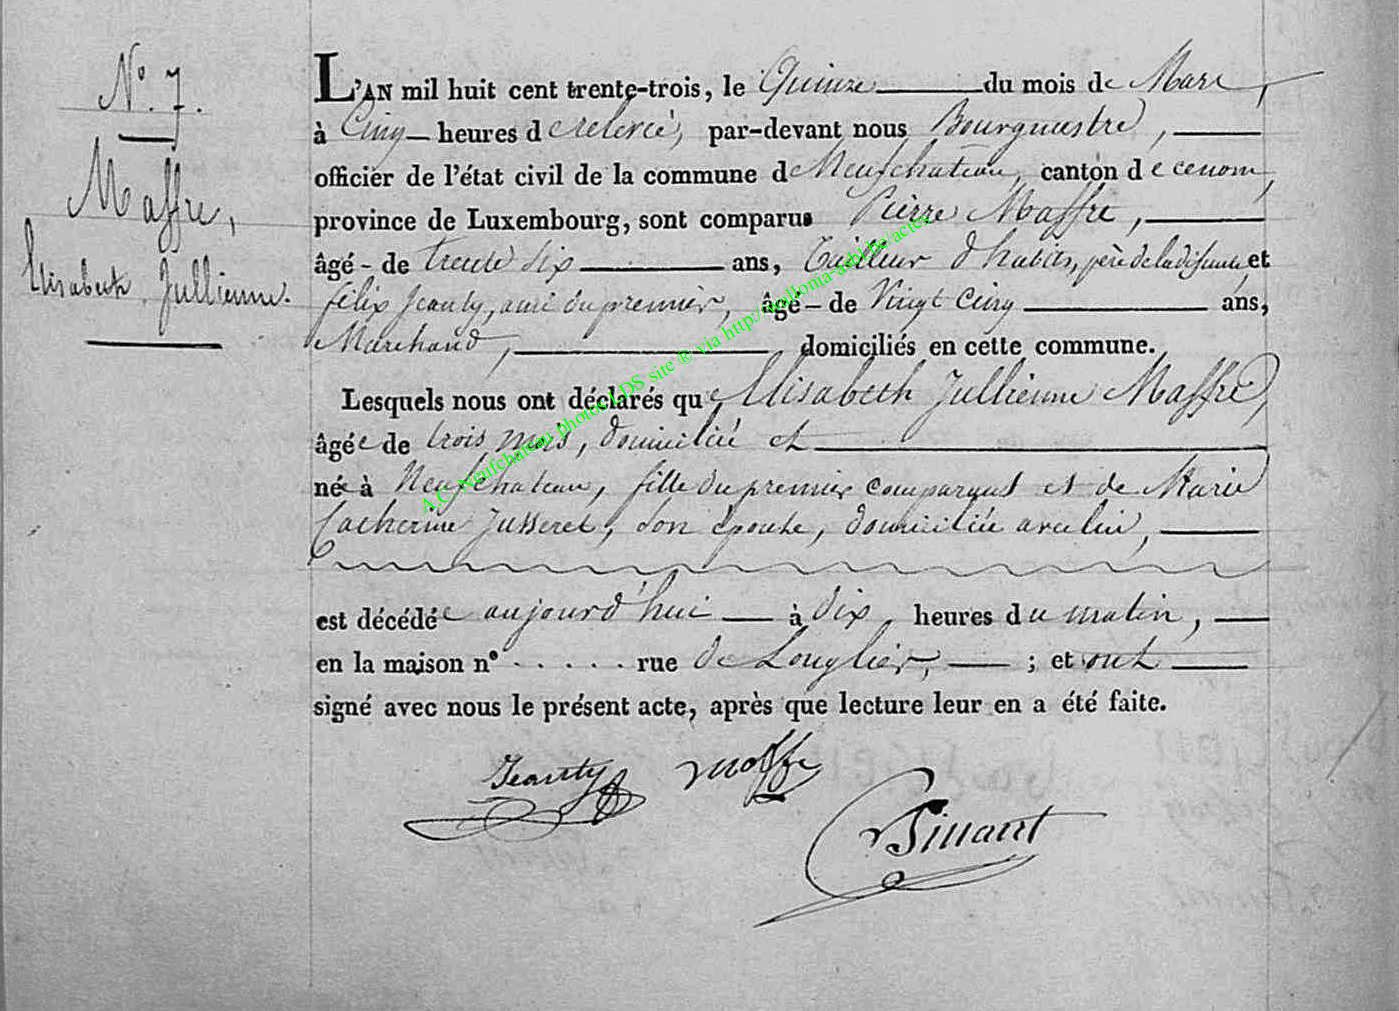 N.° 7.
Maffre,
Elisabeth Jullienne.
L'AN mil huit cent trente-trois, le Quinze du mois de Mars,
à Cinq heures de relevé, par-devant nous Bourgmestre,
officier de l'état civil de la commune de Neufchateau, canton de ce nom,
province de Luxembourg, sont comparus Pierre Maffre,
âgé - de trente six ans, Tailleur d'habits, père de la défunte, et
félix Jeanty, ami du premier, âgé - de Vingt Cinq ans,
Marchand, domiciliés en cette commune.
Lesquels nous ont déclarés qu'Elisabeth Jullienne Maffre,
âgée de trois mois, domiciliée et
née à Neufchateau, fille du premier comparant et de Marie
Catherine Jusseret, son épouse, domiciliée avec lui,
est décédée aujourd'hui à dix heures du matin,
en la maison n° . . . . . rue de Longlier, ; et ont
signé avec nous le présent acte, après que lecture leur en a été faite.
Jeanty Maffre
A.C. Neufchateau photos LDS site ® via http://wallonia-asbl.be/actes